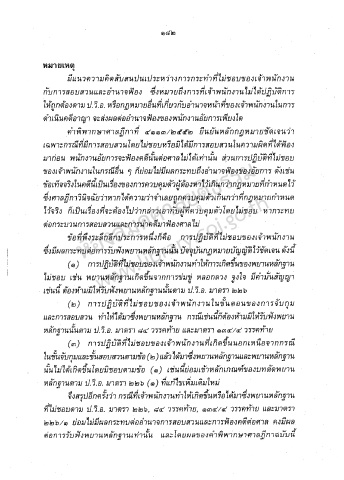 ๑๔๒
หมายเหตุ
มีแนวความคิดสับสนปนเประหว่างการกระทำที่ไม่ชอบของเจ้าพนักงาน
กับการสอบสวนและอำนาจฟ้อง ซึ่งหมายถึงการที่เจ้าพนักงานไม่ได้ปฏิบัติการ
ให้ถูกต้องตาม ป.วิ.อ. หรือกฎหมายอื่นที่เกี่ยวกับอำนาจหน้าที่ของเจ้าพนักงานในการ
ดำเนินคดีอาญา จะส่งผลต่ออำนาจฟ้องของพนักงานอัยการเพียงใด
คำพิพากษาศาลฎีกาที่ ๔๑๑๓/๒๕๕๒ ยืนยันหลักกฎหมายชัดเจนว่า
เฉพาะกรณีที่มีการสอบสวนโดยไม่ชอบหรือมิได้มีการสอบสวนในความผิดที่ได้ฟ้อง
มาก่อน พนักงานอัยการจะฟ้องคดีนั้นต่อศาลไม่ได้เท่านั้น ส่วนการปฏิบัติที่ไม่ชอบ
ของเจ้าพนักงานในกรณีอื่น ๆ ก็ย่อมไม่มีผลกระทบถึงอำนาจฟ้องของอัยการ ดังเช่น
ข้อเท็จจริงในคดีนี้เป็นเรื่องของการควบคุมตัวผู้ต้องหาไว้เกินกว่ากฎหมายที่กำหนดไว้
ซึ่งศาลฎีกาวินิจฉัยว่าหากได้ความว่าจำเลยถูกควบคุมตัวเกินกว่าที่กฎหมายกำหนด
ไว้จริง ก็เป็นเรื่องที่จะต้องไปว่ากล่าวเอากับผู้ที่ควบคุมตัวโดยไม่ชอบ หากระทบ
ต่อกระบวนการสอบสวนและการนำคดีมาฟ้องศาลไม่
ข้อที่พึงระลึกอีกประการหนึ่งก็คือ การปฏิบัติที่ไม่ชอบของเจ้าพนักงาน
ซึ่งมีผลกระทบต่อการรับฟังพยานหลักฐานนั้น ปัจจุบันกฎหมายบัญญัติไว้ชัดเจน ดังนี้
(๑) การปฏิบัติที่ไม่ชอบของเจ้าพนักงานทำให้การเกิดขึ้นของพยานหลักฐาน
ไม่ชอบ เช่น พยานหลักฐานเกิดขึ้นจากการข่มขู่ หลอกลวง จูงใจ มีคำมั่นสัญญา
เช่นนี้ ต้องห้ามมิให้รับฟังพยานหลักฐานนั้นตาม ป.วิ.อ. มาตรา ๒๒๖
(๒) การปฏิบัติที่ไม่ชอบของเจ้าพนักงานในขั้นตอนของการจับกุม
และการสอบสวน ทำให้ได้มาซึ่งพยานหลักฐาน กรณีเช่นนี้ก็ต้องห้ามมิให้รับฟังพยาน
หลักฐานนั้นตาม ป.วิ.อ. มาตรา ๘๔ วรรคท้าย และมาตรา ๑๓๔/๔ วรรคท้าย
(๓) การปฏิบัติที่ไม่ชอบของเจ้าพนักงานที่เกิดขึ้นนอกเหนือจากกรณี
ในชั้นจับกุมและชั้นสอบสวนตามข้อ (๒) แล้วได้มาซึ่งพยานหลักฐานและพยานหลักฐาน
นั้นไม่ได้เกิดขึ้นโดยมิชอบตามข้อ (๑) เช่นนี้ย่อมเข้าหลักเกณฑ์ของบทตัดพยาน
หลักฐานตาม ป.วิ.อ. มาตรา ๒๒๖ (๑) ที่แก้ไขเพิ่มเติมใหม่
จึงสรุปอีกครั้งว่า กรณีที่เจ้าพนักงานทำให้เกิดขึ้นหรือได้มาซึ่งพยานหลักฐาน
ที่ไม่ชอบตาม ป.วิ.อ. มาตรา ๒๒๖, ๘๔ วรรคท้าย, ๑๓๔/๔ วรรคท้าย และมาตรา
๒๒๖/๑ ย่อมไม่มีผลกระทบต่ออำนาจการสอบสวนและการฟ้องคดีต่อศาล คงมีผล
ต่อการรับฟังพยานหลักฐานเท่านั้น และโดยผลของคำพิพากษาศาลฎีกาฉบับนี้